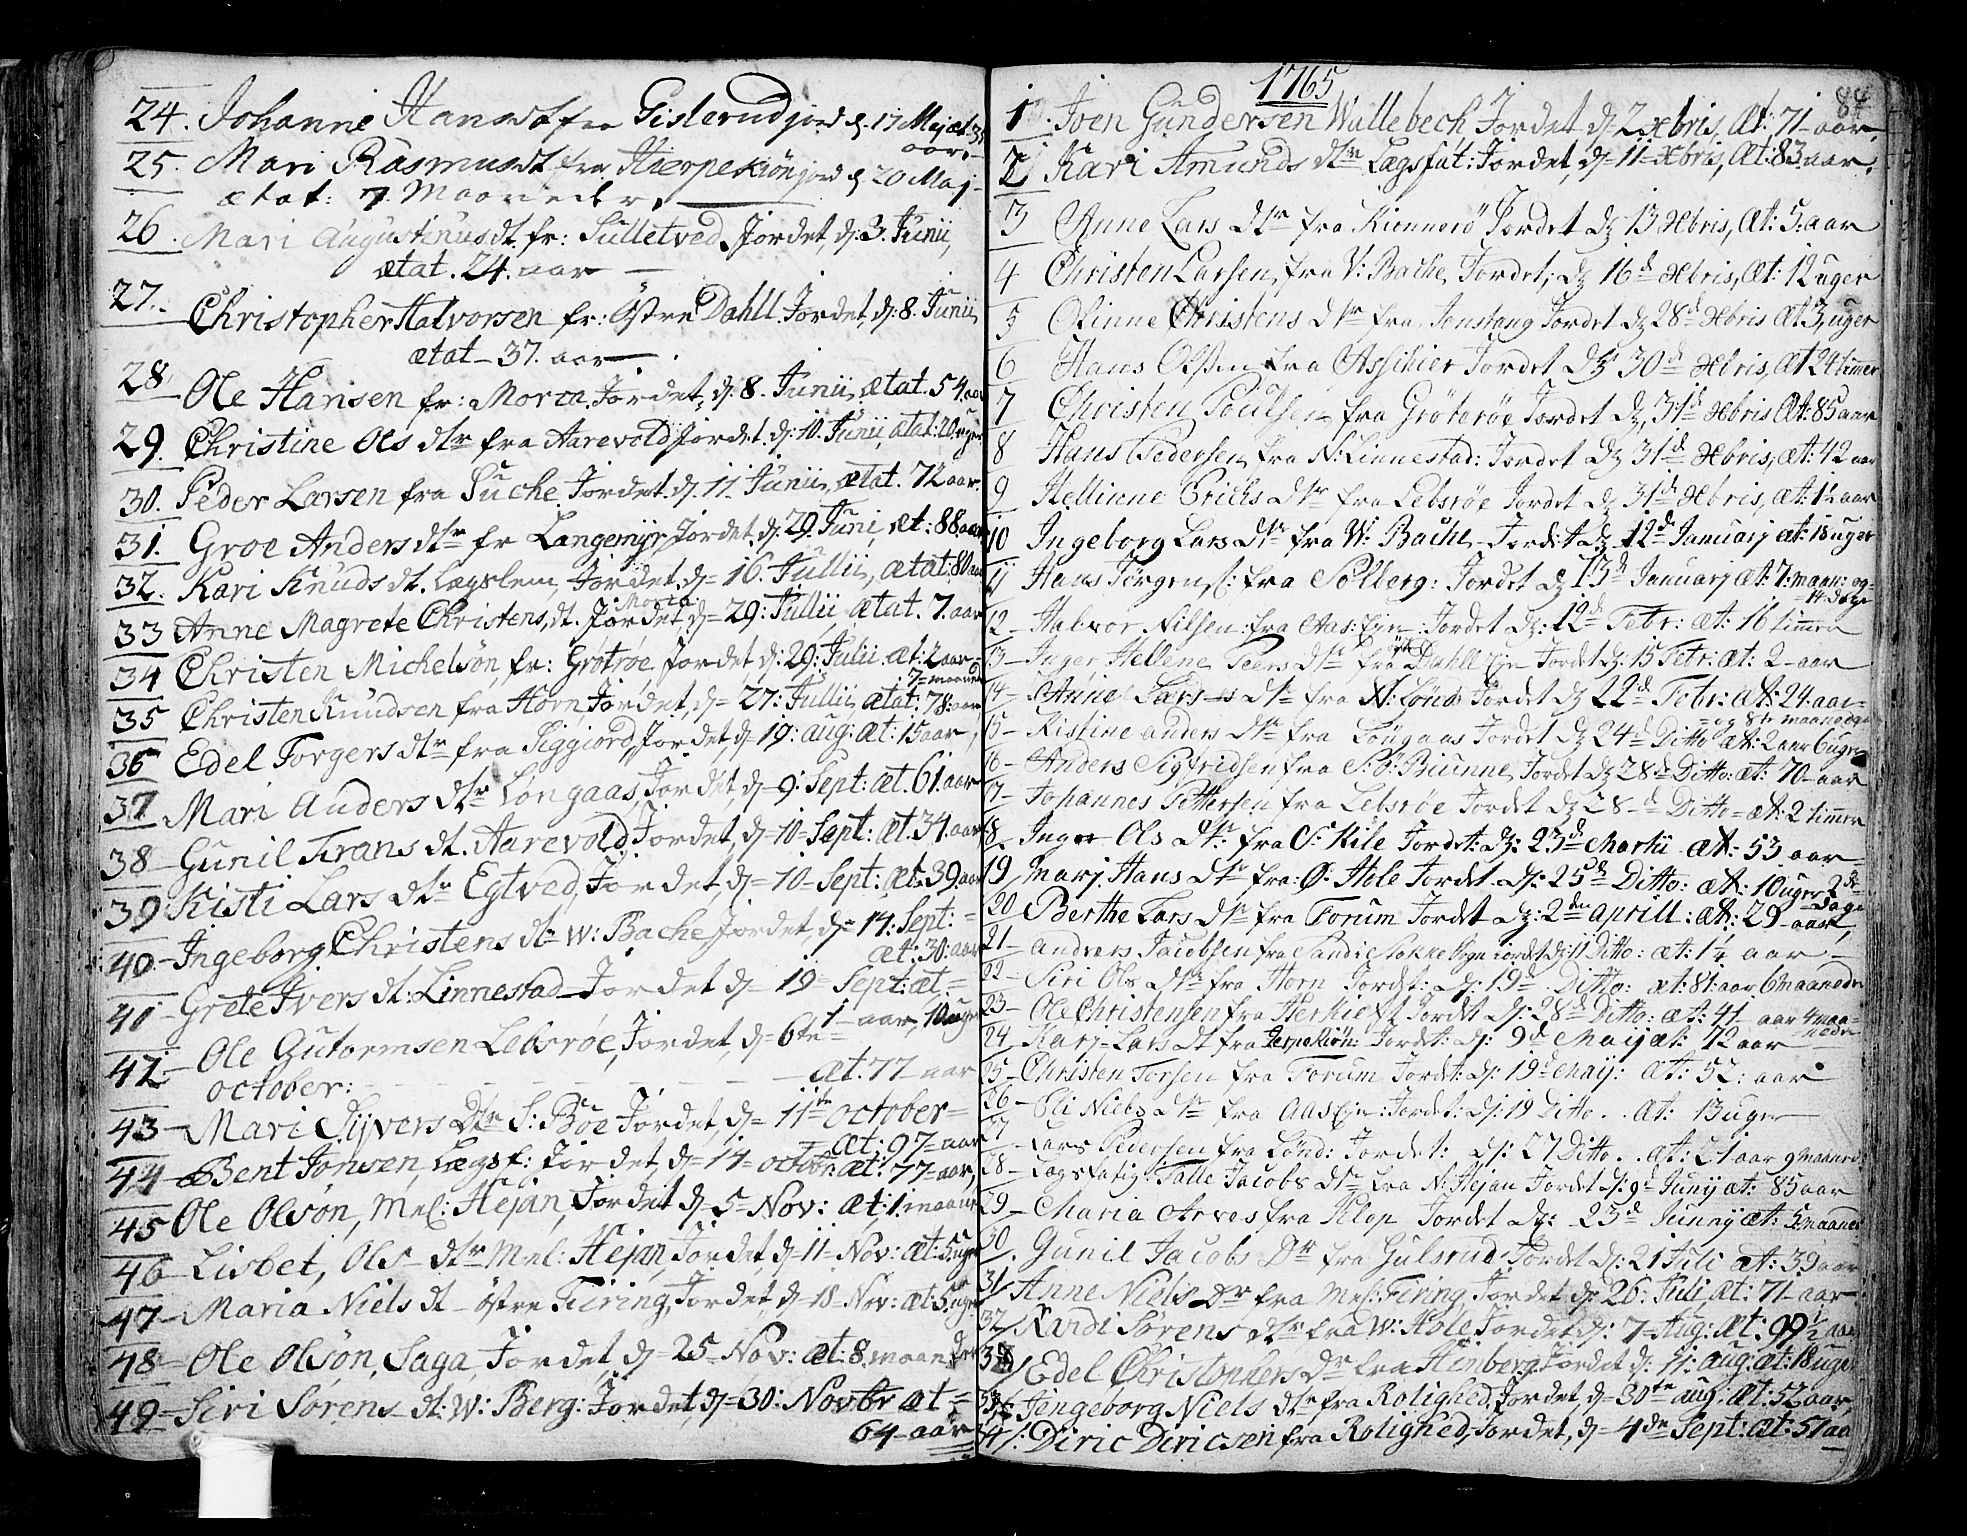 24. Johanne Hansdt fra Gislerud jord d. 17 Maj æt. 38
aar.
25. Mari Rasmusdt fra Hierpekiøn jord d. 20 Maj
ætat: 7 Maaneder.
26. Mari Augustinusdt. fr: Sulletved Jordet, d: 3. Junii,
ætat. 24. aar
27. Christopher Halvorsen fr: Östre Dahll. Jordet, d: 8. Junii
ætat 37. aar
28. Ole Hansen fr: Morca Jordet, d: 8. Junii, ætat. 54 aar
29. Christine Ols dtr fra Aarevold Jordet. d: 10. Junii, ætat: 20 uger
30. Peder Larsen fra Puche Jordet. d. 11 Junii, ætat. 72 aar.
31. Groe Anders dtr fr Langemyr Jordet d. 29. Juni, æt: 88 aar
32. Kari Knuds dt. Lægslem, Jordet, d= 16. Jullii, ætat: 80 aar
33 Anne Magrete Christens, dt. Morca Jordet d= 29: Jullii, ætat. 7. aar
34 Christen Michelsön, fr: Grotröe, Jordet, d: 29: Julii æt: 2 aar
7 maaned
35 Christen Knudsen fra Horn, Jordet, d= 27: Jullii, ætat: 78: aar
36 Edel Torgers dtr fra Siggiord, Jordet, d= 19: aug: æt: 15 aar,
37 Mari Anders dtr Lôngaas, Jordet, d= 9: Sept: æt. 61 aar
38 Gunil Frans dt. Aarevold, Jordet, d= 10 Sept: æt. 34 aar
39 Kisti Lars dtr Egtved, Jordet, d= 10 Sept: æt: 39 aar
40 Ingeborg Christens dtr W: Bache, Jordet, d= 14: Sept: =
æt: 30: aar
41 Grete Ivers dt: Linnestad Jordet d= 19 Sept: æt =
1 aar, 10 uger
42 Ole Gutormsen Lebsröe, Jordet, d= 6te
october: æt. 77 aar
43 Mari Syvers Dtr S: Böe Jordet, d= 11te october=
æt: 97 = aar
44 Bent Jonsen, Lægsf: Jordet, d= 14 = octobr: æt: 77 = aar,
45 Ole Olsön, Mel: Hejan, Jordet d= 5 Nov: æt, 1. maaned
46 Lisbet, Ols dtr Mel: Hejan, Jordet, d= 11 Nov: æt: 5 uger
47 Maria Niels dt östre Fiering, Jordet, d= 18 Nov: æt: 5 uger
48 Ole Olsön, Saga, Jordet, d= 25 Nov: æt: 8. maaneder
49 Siri Sörens dt: W: Berg: Jordet, d= 30: Novbr æt=
64 aar
1765
1. Joen Gundersen Wallebech Jordet d. 2 Xbris, Æt: 71 aar
2 Kari Amunds dtr Lægsfat: Jordet, d= 11 Xbris, Æt: 83 aar.
3 Anne Lars Dtr fra Kiennerö Jordet d: 13 Xbris, Æt: 5: aar
4 Christen Larsen, fra V: Bache, Jordet; d: 16d Xbris, Æt: 12 uger
5 Olinne Christens Dtr fra Jonstang Jordet d: 28d Xbris Æt 3, uger
6 Hans Olssen fra Asschier Jordet d: 30d Xbris, Æt 24 timer
7 Christen Poulsen fra Gröteröe Jordet d: 31d Xbris Æt: 85 aar
8 Hans Pedersen, fra N: Linnestad: Jordet d: 31d Xbris, æt: 42 aar
9 Hellinne Erichs Dtr fra Lebsröe Jordet d: 31d Xbris, æt: 12 aar
10 Ingeborg Lars Dtr fra W: Bache Jordet d: 12d Januarj æt: 18 uger
11 Hans Jörgens: fra Solberg: Jordet d: 13d Januarj æt: 7: maan: og
14 dage
12 Halvor Nilsen: fra Aas: Eye: Jordet d: 12d Febr: æt: 16 timer
13 Inger Hellene Peers Dtr fra Dahll Eje Jordet d: 15 Febr: æt: 2 aar
14 Anne Lars Dtr fra N: Lönd Jordet d: 22d Febr: æt: 24 aar=
= og 8te maaneder
15 Kistine anders Dtr fra Löngaas Jordet d: 24d Ditto æt: 2 aar 6 uger
16 Anders Sigfridsen fra S: Biunne, Jordet d: 28d Ditto: æt: 70 aar
17 Johannes Pettersen fra Lebsröe Jordet d: 28 d Ditto = æt: 2 timer
18. Inger Ols Dtr: fra S: Kile Jordet: d: 23d Martii æt: 53 aar
19 Marj. Hans Dtr fra: Ö: Hole Jordet d: 25d Ditto: æt: 10 uger 2
dage
20 Berthe Lars Dtr fra Forum Jordet d: 2den aprill: æt: 29 aar,
21 Andrers Jacobsen fra Sandi Stokke Sogn Jordet d: 11 Ditto: æt: 1¼ aar
22 Siri Ols Dtr fra Horn Jordet: d: 19d Ditto: æt: 81: aar 6 maaneder
23 Ole Christensen fra Herkieft Jordet d: 28d Ditto: æt: 41 aar 4 maa=
neder
24 Karj Lars Dt fra Jerpekiön: Jordet: d: 9d Maij æt: 72 aar
25 Christen Torsen fra Forum Jordet: d: 19d Maij: æt: 52: aar
26 Eli Niels Dtr fra Aas Eje: Jordet: d: 19 Ditto.. æt: 13 uger
27 Lars Pedersen fra Lönd: Jordet: d: 27 Ditto.. æt: 21 aar 9 maaned:
28 Lagsfatig: Talle Jacobs Dtr fra N: Hejan Jordet d: 9d Junij æt: 85 aar
29 Maria Arves fra Klop Jordet d: 23d Junnij æt: 5 maaned
30. Gunil Jacobs Dtr fra Gulsrud Jordet d: 21 Juli æt: 39 aar
31 Anne Niels Dr fra Mel: Firing, Jordet d: 26: Juli, æt: 71 aar
32 Randi Sörens dtr fra W: Hole Jordet, d: 7 Aug: æt: 99 ½ aar
33 Edel Christophers Dr fra Himberg Jordet d: 11: aug: æt: 18 uger
33 Jengeborg Niels dtr fra Rolighed, Jordet, d= 30te aug: æt: 52 aar,
34 Diric Diricsen fra Rolighed, Jordet, d= 4de Sept: æt: 51 aa